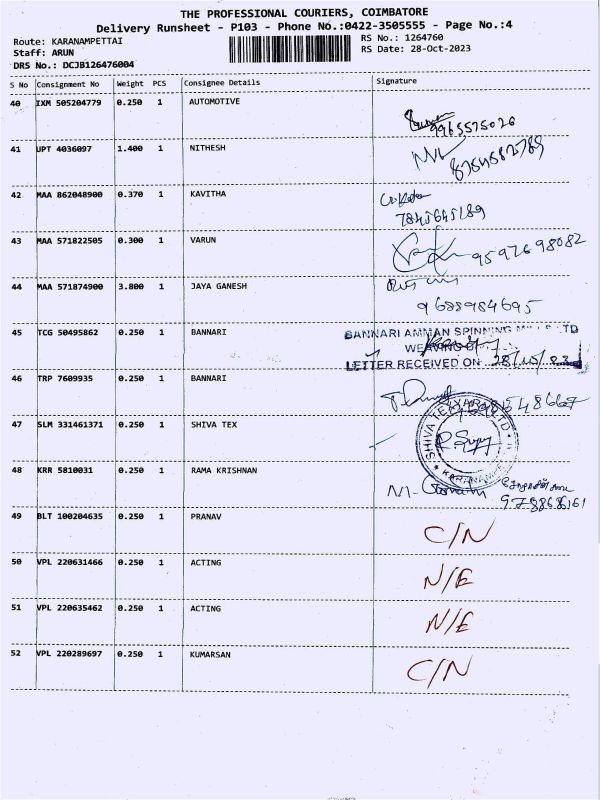 THE PROFESSIONAL COURIERS, COIMBATORE
Delivery Runsheet - P103 - Phone No.:0422-3505555 - Page No.:4
Route: KARANAMPETTAI
RS No.: 1264760
Staff: ARUN
RS Date: 28-Oct-2023
DRS No.: DCJB126476004
S No Consignment No Weight PCS Consignee Details Signature
40 IXM 505204779 0.250 1 AUTOMOTIVE
9965575026
41 UPT 4036097 1.400 1 NITHESH
8754582789
42 MAA 862048900 0.370 1 KAVITHA
7845645189
43 MAA 571822505 0.300 1 VARUN
9597698082
44 MAA 571874900 3.800 1 JAYA GANESH
9688984695
45 TCG 50495862 0.250 1 BANNARI
BANNARI AMMAN SPINNING MILLS LTD
LETTER RECEIVED ON 28/10/23
46 TRP 7609935 0.250 1 BANNARI
47 SLM 331461371 0.250 1 SHIVA TEX
SHIVA TEXYARN LTD
48 KRR 5810031 0.250 1 RAMA KRISHNAN
49 BLT 100204635 0.250 1 PRANAV
C/N
50 VPL 220631466 0.250 1 ACTING
N/E
51 VPL 220635462 0.250 1 ACTING
N/E
52 VPL 220289697 0.250 1 KUMARSAN
C/N